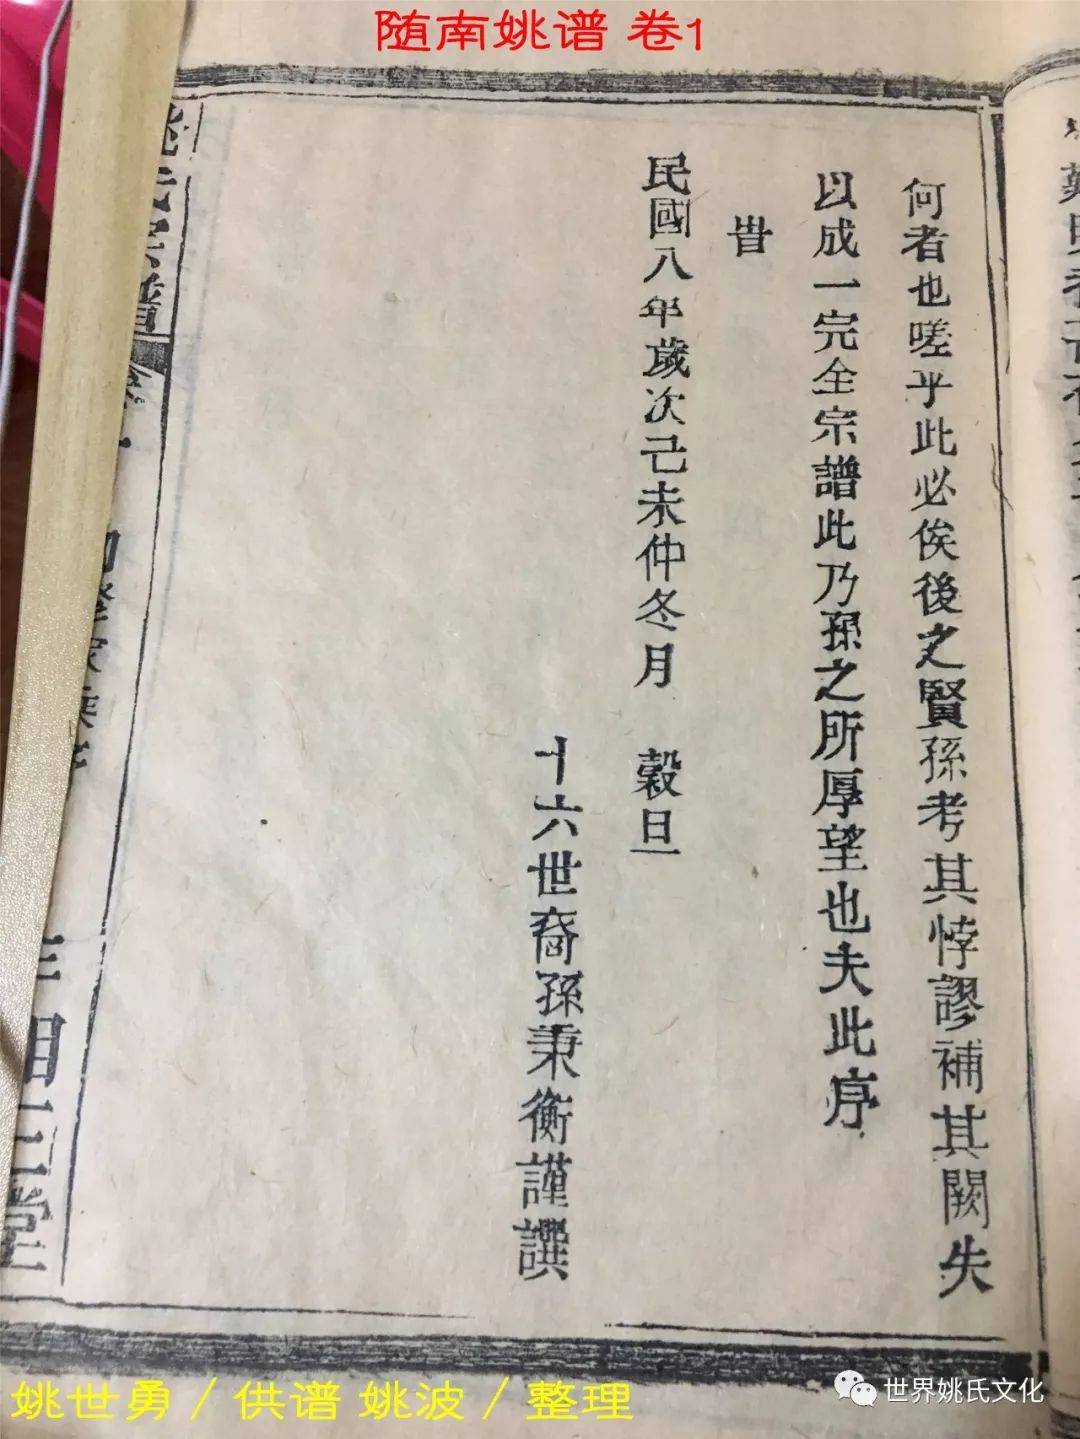 随南姚谱 卷1
何者也嗟乎此必俟後之賢孫考其悖謬補其闕失
以成一完全宗譜此乃孫之所厚望也夫此序
旹
民國八年歲次己未仲冬月 穀旦
十六世裔孫秉衡謹譔
姚氏宗譜
三相堂
姚世勇／供谱 姚波／整理
世界姚氏文化